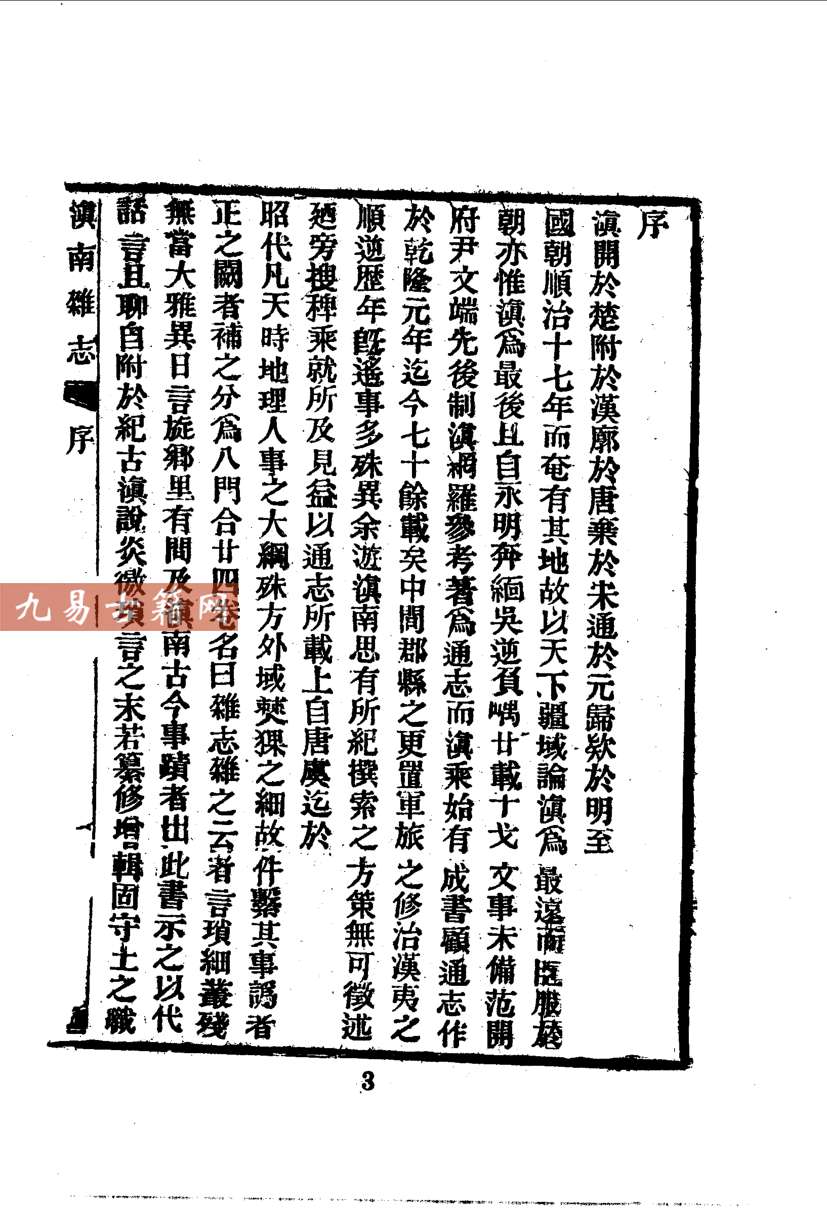 序
滇開於楚附於漢廓於唐棄於宋通於元歸欵於明至
國朝順治十七年而奄有其地故以天下疆域論滇爲最遠而臣服於
朝亦惟滇爲最後且自永明奔緬吳逆負嵎廿載干戈文事未備范開
府尹文端先後制滇網羅參考著爲通志而滇乘始有成書顧通志作
於乾隆元年迄今七十餘載矣中間郡縣之更置軍旅之修治漢夷之
順逆歷年旣遙事多殊異余遊滇南思有所紀撰索之方策無可徵述
廼旁搜稗乘就所及見益以通志所載上自唐虞迄於
昭代凡天時地理人事之大綱殊方外域爨猓之細故件繫其事譌者
正之闕者補之分爲八門合廿四卷名曰雜志雜之云者言瑣細叢殘
無當大雅異日言旋鄉里有問及滇南古今事蹟者出此書示之以代
話言且聊自附於紀古滇說炎徼瑣言之末若纂修增輯固守土之職
滇南雜志 序
3
九易古籍网